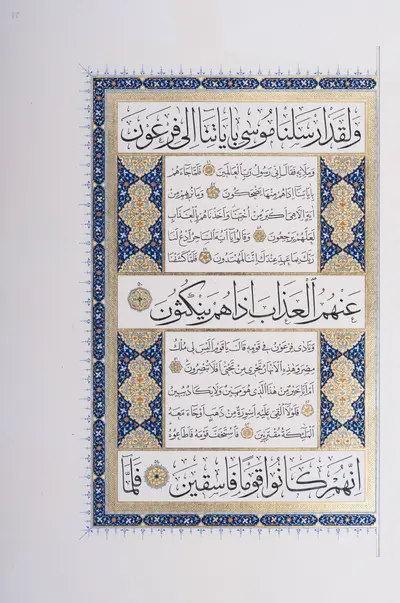 وَلَقَدْ أَرْسَلْنَا مُوسَى بِآيَاتِنَا إِلَى فِرْعَوْنَ
وَمَلَائِهِ فَقَالَ إِنِّي رَسُولُ رَبِّ الْعَالَمِينَ فَلَمَّا جَاءَهُمْ
بِآيَاتِنَا إِذَا هُمْ مِنْهَا يَضْحَكُونَ وَمَا نُرِيهِمْ مِنْ
آيَةٍ إِلَّا هِيَ أَكْبَرُ مِنْ أُخْتِهَا وَأَخَذْنَاهُمْ بِالْعَذَابِ
لَعَلَّهُمْ يَرْجِعُونَ وَقَالُوا يَا أَيُّهَ السَّاحِرُ ادْعُ لَنَا
رَبَّكَ بِمَا عَهِدَ عِنْدَكَ إِنَّنَا لَمُهْتَدُونَ فَلَمَّا كَشَفْنَا
عَنْهُمُ الْعَذَابَ إِذَا هُمْ يَنْكُثُونَ
وَنَادَى فِرْعَوْنُ فِي قَوْمِهِ قَالَ يَا قَوْمِ أَلَيْسَ لِي مُلْكُ
مِصْرَ وَهَذِهِ الْأَنْهَارُ تَجْرِي مِنْ تَحْتِي أَفَلَا تُبْصِرُونَ
أَمْ أَنَا خَيْرٌ مِنْ هَذَا الَّذِي هُوَ مَهِينٌ وَلَا يَكَادُ يُبِينُ
فَلَوْلَا أُلْقِيَ عَلَيْهِ أَسْوِرَةٌ مِنْ ذَهَبٍ أَوْ جَاءَ مَعَهُ
الْمَلَائِكَةُ مُقْتَرِنِينَ فَاسْتَخَفَّ قَوْمَهُ فَأَطَاعُوهُ
إِنَّهُمْ كَانُوا قَوْمًا فَاسِقِينَ فَلَمَّا